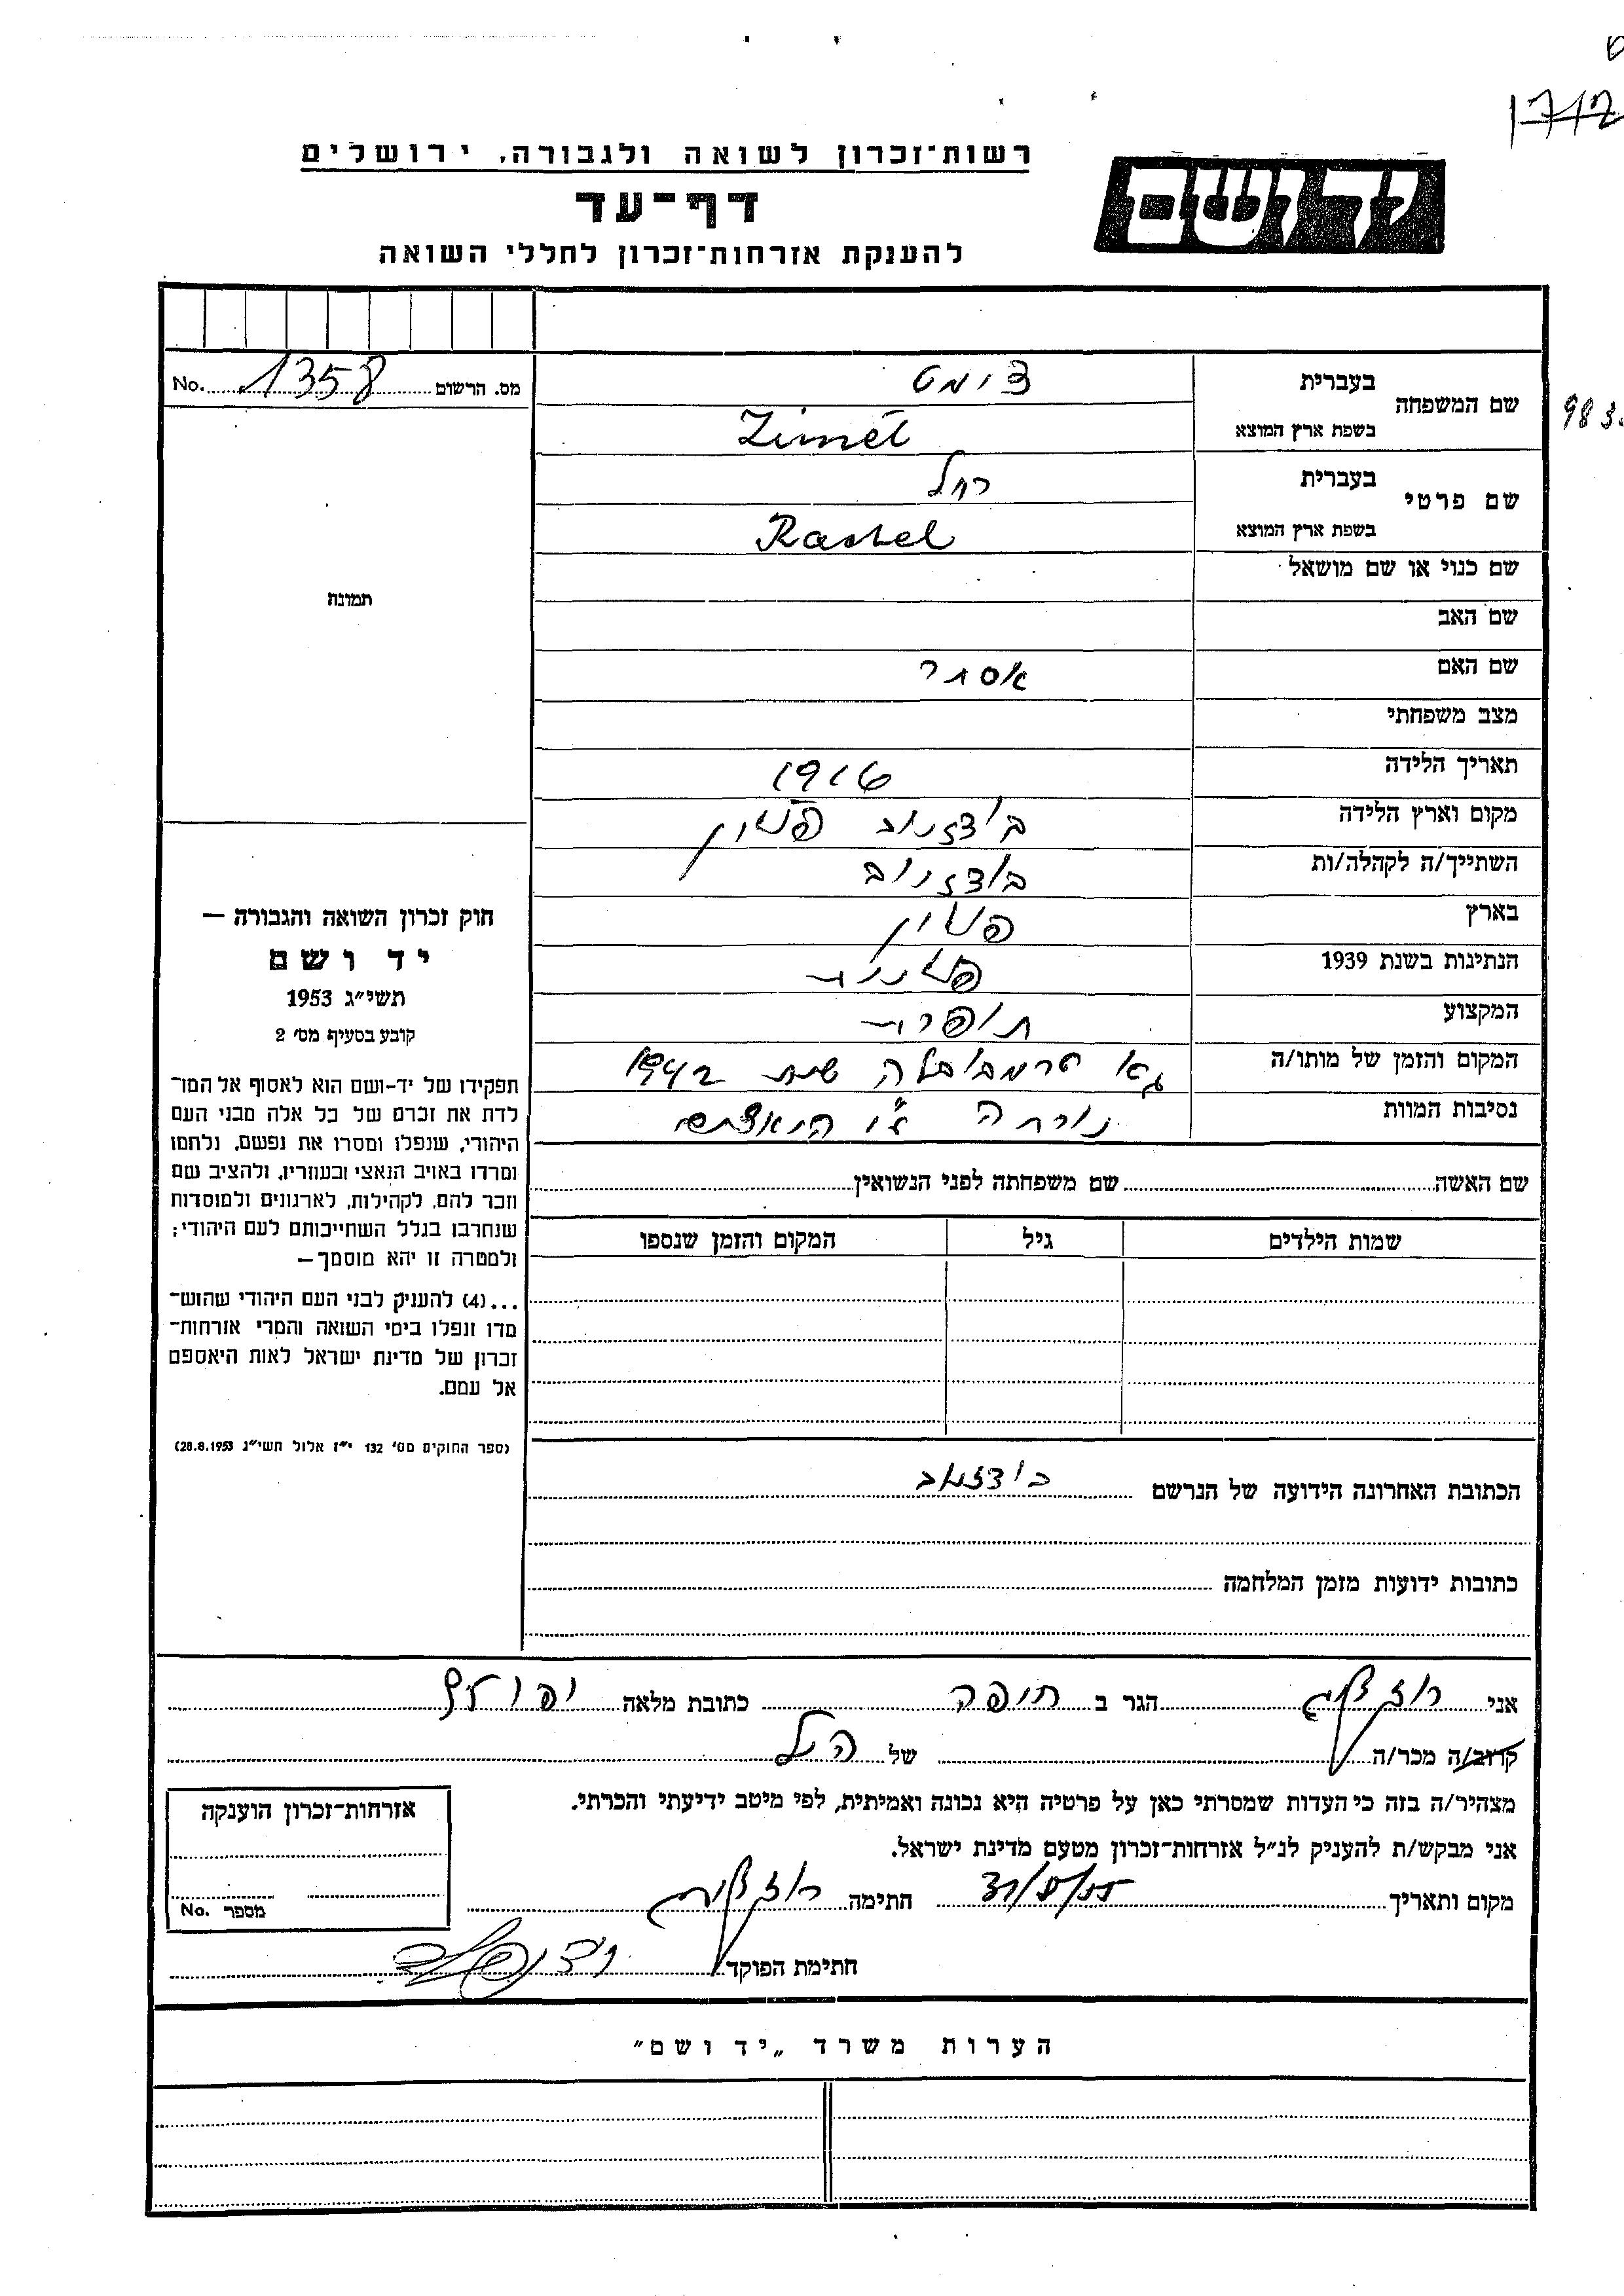 1712
רשות־זכרון לשואה ולגבורה, ירושלים
יד ושם
דף־עד
להענקת אזרחות־זכרון לחללי השואה
מס. הרשום 1358 No.
שם המשפחה
בעברית צימט
983
בשפת ארץ המוצא Zimet
שם פרטי
בעברית רחל
בשפת ארץ המוצא Rashel
שם כנוי או שם מושאל
תמונה
שם האב
שם האם אסתר
מצב משפחתי
תאריך הלידה 1916
מקום וארץ הלידה בודזנוב פולין
השתייך/ה לקהלה/ות בודזנוב
בארץ פולין
הנתינות בשנת 1939 פולנית
המקצוע תופרת
המקום והזמן של מותו/ה שנת 1942
נסיבות המוות נורתה ע"י הנאצים
חוק זכרון השואה והגבורה —
יד ושם
תשי״ג 1953
קובע בסעיף מס׳ 2
תפקידו של יד־ושם הוא לאסוף אל המו־
לדת את זכרם של כל אלה מבני העם
היהודי, שנפלו ומסרו את נפשם, נלחמו
ומרדו באויב הנאצי ובעוזריו, ולהציב שם
וזכר להם, לקהילות, לארגונים ולמוסדות
שנחרבו בגלל השתייכותם לעם היהודי;
ולמטרה זו יהא מוסמך —
...(4) להעניק לבני העם היהודי שהוש־
מדו ונפלו בימי השואה והמרי אזרחות־
זכרון של מדינת ישראל לאות היאספם
אל עמם.
(ספר החוקים מס׳ 132 י״ז אלול תשי״ג 28.8.1953)
שם האשה שם משפחתה לפני הנשואין
שמות הילדים גיל המקום והזמן שנספו
הכתובת האחרונה הידועה של הנרשם בודזנוב
כתובות ידועות מזמן המלחמה
אני רוזנצויג הגר ב חיפה כתובת מלאה
קרוב/ה מכר/ה של הנ"ל
מצהיר/ה בזה כי העדות שמסרתי כאן על פרטיה היא נכונה ואמיתית, לפי מיטב ידיעתי והכרתי.
אני מבקש/ת להעניק לנ״ל אזרחות־זכרון מטעם מדינת ישראל.
מקום ותאריך 31/5/55 חתימה
חתימת הפוקד
אזרחות־זכרון הוענקה
מספר No.
הערות משרד „יד ושם״